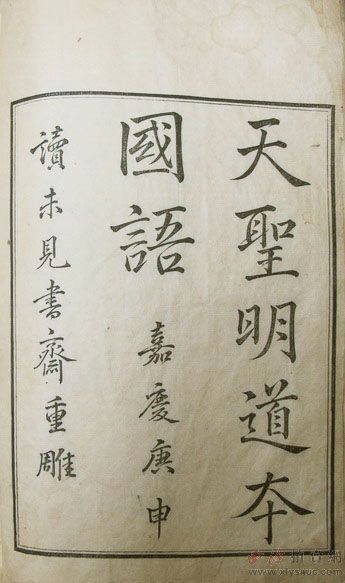 天聖明道夲
國語 嘉慶庚申
讀未見書齋重雕
www.xlysauc.com